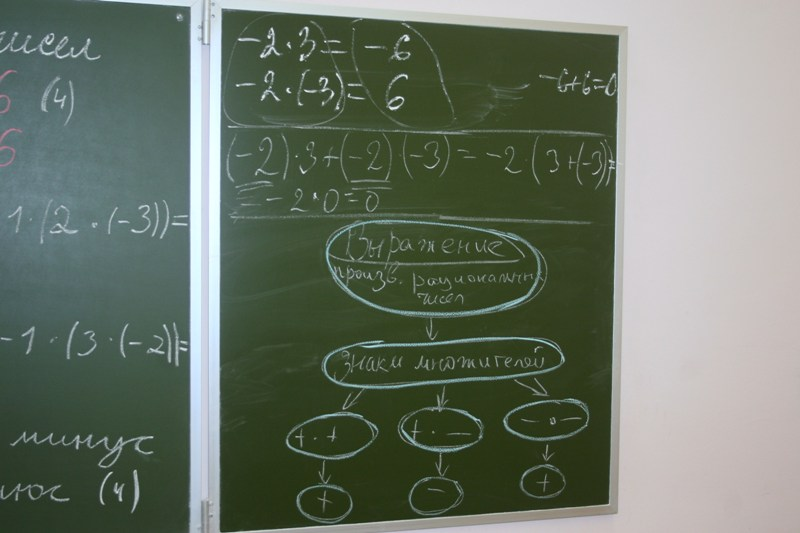 чисел
6 (4)
6
1·(2·(-3))=
-1·(3·(-2))=
минус
(4)
-2·3=-6
-2·(-3)=6
-6+6=0
(-2)·3+(-2)·(-3)=-2·(3+(-3))=
=-2·0=0
Выражение
произв. рациональн.
чисел
Знаки множителей
+·+
+·-
-·-
+
-
+